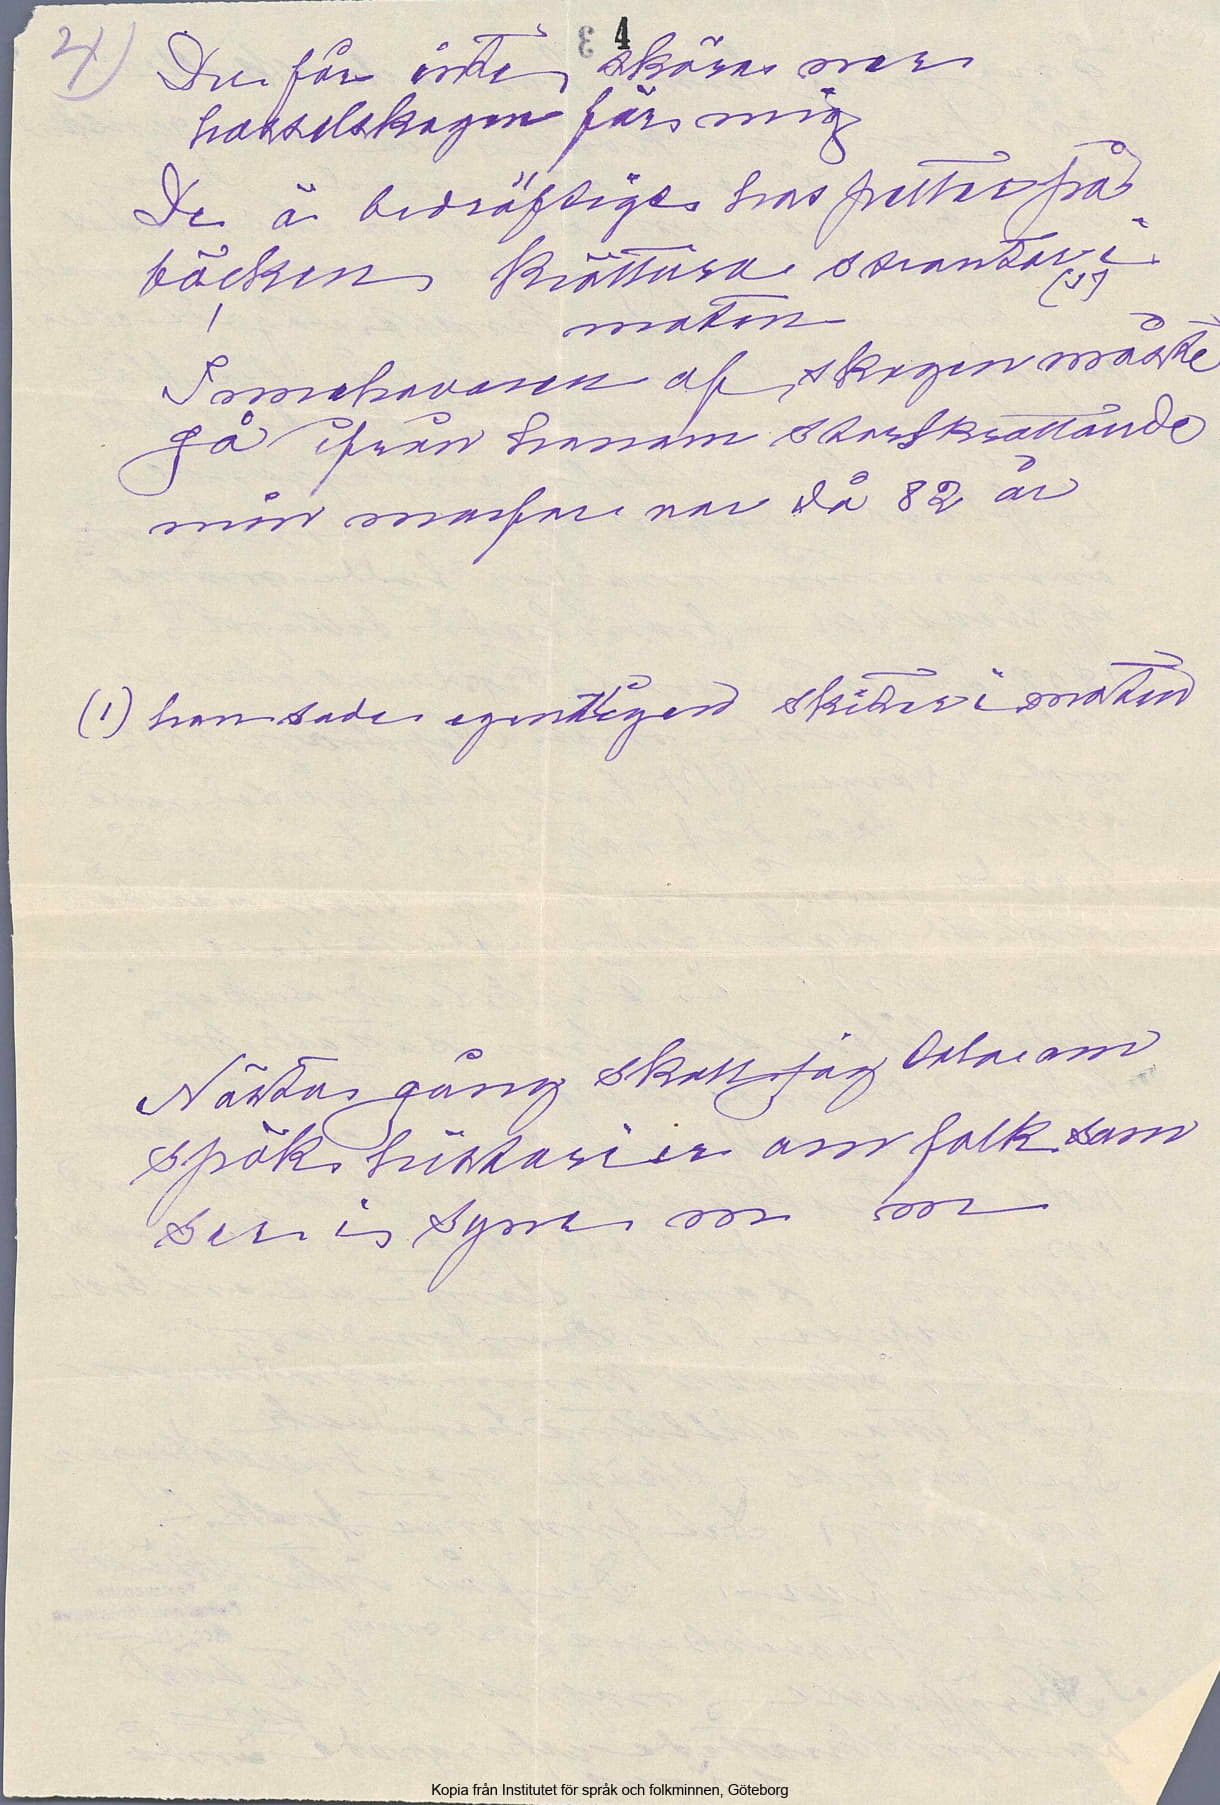 4)
4
Du får inte sköra mer
hasselskogen för mig
De ä bedröfligt hos fetter på
böcken
krattara strantar i
(1)
maten
Innehavaren af skogen måste
gå ifrån honom storskrattande
min morfar var då 82 år
(1) han sade egentligen skiter i maten
Nästa gång skall jag tala om
spök historier om folk som
ser i syne m m
Kopia från Institutet för språk och folkminnen, Göteborg